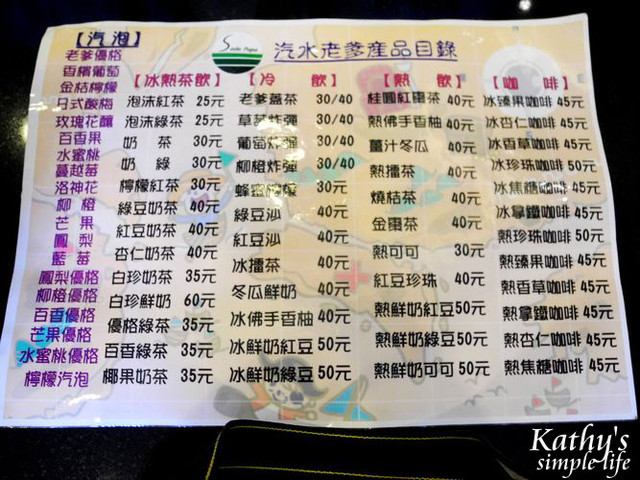 Soda Papa
汽水老爹產品目錄
【汽泡】
老爹優格
香檳葡萄
金桔檸檬
日式酸梅
玫瑰花釀
百香果
水蜜桃
蔓越莓
洛神花
柳橙
芒果
鳳梨
藍莓
鳳梨優格
柳橙優格
百香優格
芒果優格
水蜜桃優格
檸檬汽泡
【冰熱茶飲】
泡沫紅茶 25元
泡沫綠茶 25元
奶茶 30元
奶綠 30元
檸檬紅茶 30元
綠豆奶茶 40元
紅豆奶茶 40元
杏仁奶茶 40元
白珍奶茶 35元
白珍鮮奶 60元
優格綠茶 35元
百香綠茶 35元
椰果奶茶 35元
【冷飲】
老爹蓋茶 30/40
草莓炸彈 30/40
葡萄炸彈 30/40
柳橙炸彈 30/40
蜂蜜檸檬 30元
綠豆沙 40元
紅豆沙 40元
冰擂茶 40元
冬瓜鮮奶 40元
冰佛手香柚 40元
冰鮮奶紅豆 50元
冰鮮奶綠豆 50元
【熱飲】
桂圓紅棗茶 40元
熱佛手香柚 40元
薑汁冬瓜 40元
熱擂茶 40元
燒桔茶 40元
金棗茶 40元
熱可可 30元
紅豆珍珠 40元
熱鮮奶紅豆 50元
熱鮮奶綠豆 50元
熱鮮奶可可 50元
【咖啡】
冰臻果咖啡 45元
冰杏仁咖啡 45元
冰香草咖啡 45元
冰珍珠咖啡 50元
冰焦糖咖啡 45元
冰拿鐵咖啡 45元
熱珍珠咖啡 50元
熱臻果咖啡 45元
熱香草咖啡 45元
熱拿鐵咖啡 45元
熱杏仁咖啡 45元
熱焦糖咖啡 45元
Kathy's
simple life